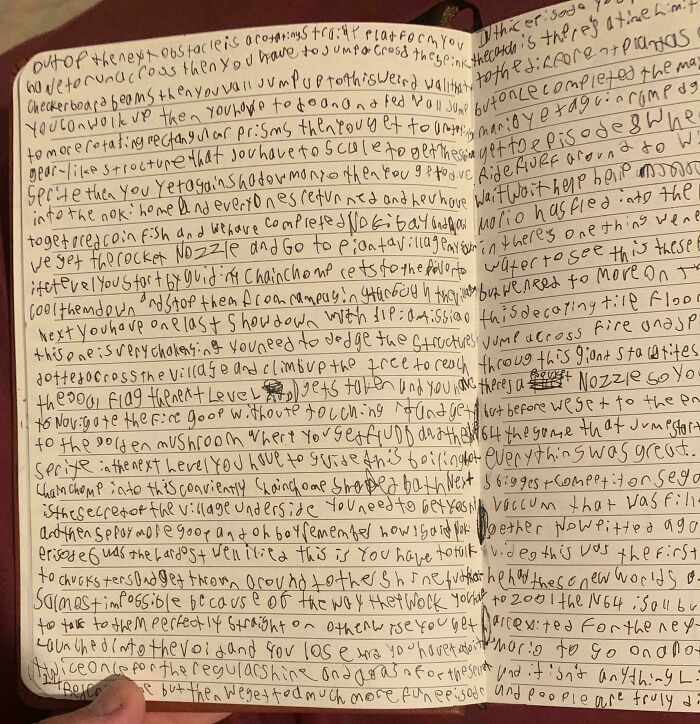 out of the next obstacle is a rotating straight platform you
have to run across then you have to jump across these pink
checkerboard beams then you wall jump up to this weird wall that
you can walk up then you have to do an and red wall jump
to more rotating rectangular prisms then you get to a
gear-like structure that you have to scale to get the shine
Sprite then you yet again shadow mario then you get to dive
into the noki home and everyones returned and you have
together ed coin fish and we have completed Noki bay and now
we get the rocket Nozzle and Go to pianta village
level you start by guiding Chain chomp lets to the river to
cool them down and stop them from rampaging through the village
Next you have one last Showdown with
this one is very you need to dodge the structures
dotted across the village and climb up the tree to reach
the goal flag the next level gets taken and you have
to Navigate the fire goop without touching it and get
to the golden mushroom where you get fludd and the
Sprite in the next level you have to guide this boiling hot
Chain chomp into this conviently Chain chome Shaped bath Next
is the secret of the village underside you need to get yoshi
and then spray more goop and oh boy remember how I said Noki
episode 6 was the hardest well i lied this is You have to talk
to chucksters and get thrown around to the Shine but that
S almost impossible because of the way they work You have
to talk to them perfectly straight on otherwise you get
Launched into the void and you lose and you have to do it
twice once for the regular shine and again for the secret
but then we get to a much more fun episode
In this episode you
the catch is there's a time limit
to the different piantas
but once completed the
mario yet again rampag
get to episode 8 where
Ride fluff around to
Wait Wait help help
mario has fled into the
in there's one thing we
water to see this these
but we need to move on
this decaying tile floor
Jump across fire and sp
through this giant stalactites
theres a Nozzle so you
but before we get to the en
64 the game that Jump start
everything was great.
s biggest competitor Sega
vaccum that was fill
gether Now pitted aga
video this was the first
he had these new worlds
to 2001 the N64 is all bu
are exited for the next
mario to go on a pot
and it isn't anything L
and people are truly